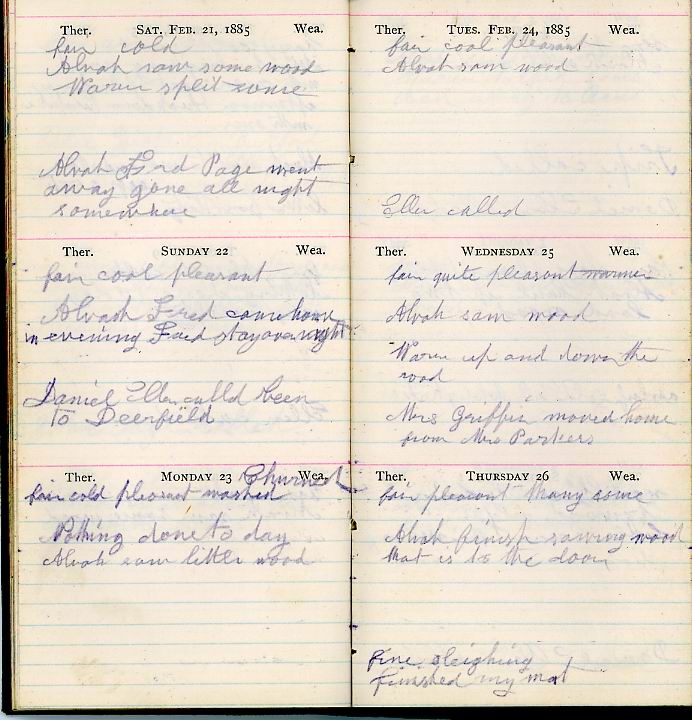 Ther. SAT. FEB. 21, 1885 Wea.
fair cold
Alvah sam some wood
Warren split some
Alvah Fred Page went
away gone all night
somewhere
Ther. SUNDAY 22 Wea.
fair cool pleasant
Alvah Fred come home
in evening Fred stay over night
Daniel Ellen calld been
to Deerfield
Ther. MONDAY 23 Wea.
Churned
fair cold pleasant washed
Nothing done to day
Alvah sam little wood
Ther. TUES. FEB. 24, 1885 Wea.
fair cool pleasant
Alvah sam wood
Ellen called
Ther. WEDNESDAY 25 Wea.
fair quite pleasant warmer
Alvah sam wood
Warren up and down the
road
Mrs Griffin moved home
from Mrs Parkers
Ther. THURSDAY 26 Wea.
fair pleasant thawy some
Alvah finish sawing wood
that is to the door
fine sleighing
finished my mat